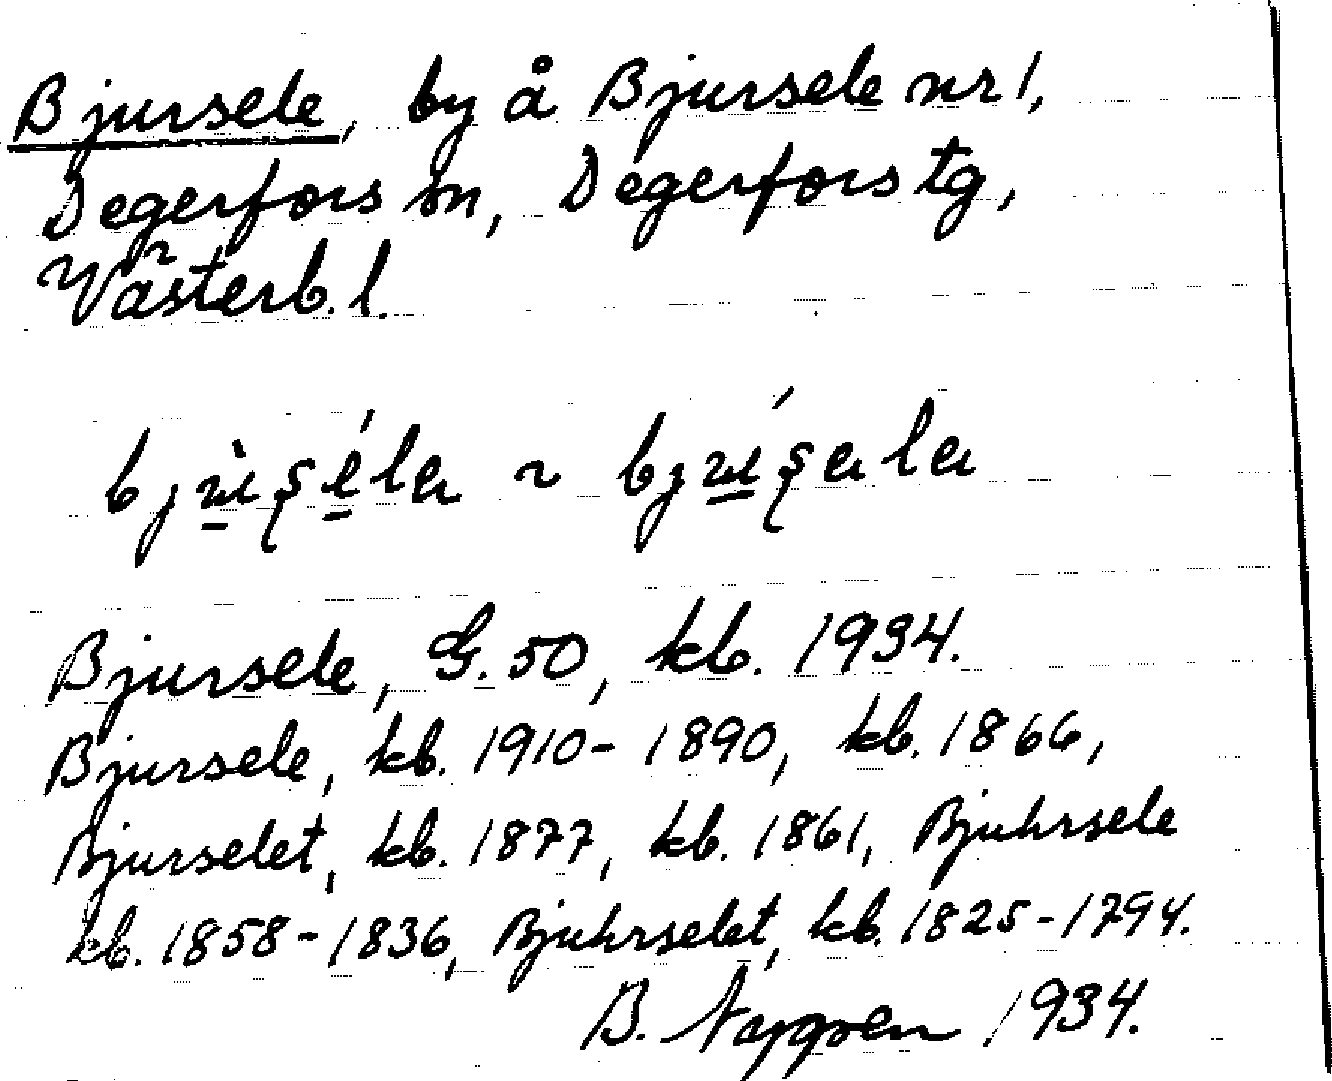 Bjursele, by å Bjursele nr 1,
Degerfors sn, Degerfors tg,
Västerb. l.
Bjursele, G. 50, kb. 1934.
Bjursele, kb. 1910-1890, kb. 1866,
Bjurselet, kb. 1877, kb. 1861, Bjuhrsele
kb. 1858-1836, Bjuhrselet, kb. 1825-1794.
B. 1934.